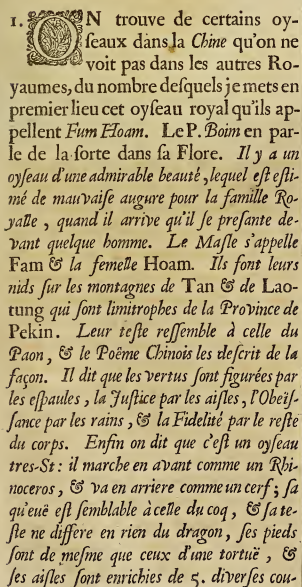 1. ON trouve de certains oy-
ſeaux dans la Chine qu'on ne
voit pas dans les autres Ro-
yaumes, du nombre deſquels je mets en
premier lieu cet oyſeau royal qu'ils ap-
pellent Fum Hoam. Le P. Boim en par-
le de la ſorte dans ſa Flore. Il y a un
oyſeau d'une admirable beauté, lequel eſt eſti-
mé de mauvaiſe augure pour la famille Ro-
yalle, quand il arrive qu'il ſe preſante de-
vant quelque homme. Le Maſle s'appelle
Fam & la femelle Hoam. Ils font leurs
nids ſur les montagnes de Tan & de Lao-
tung qui ſont limitrophes de la Province de
Pekin. Leur teſte reſſemble à celle du
Paon, & le Poëme Chinois les deſcrit de la
façon. Il dit que les vertus ſont figurées par
les eſpaules, la Juſtice par les aiſles, l'Obeïſ-
ſance par les rains, & la Fidelité par le reſte
du corps. Enfin on dit que c'eſt un oyſeau
tres-St: il marche en avant comme un Rhi-
noceros, & va en arriere comme un cerf; ſa
qu'euë eſt ſemblable à celle du coq, & ſa te-
ſte ne differe en rien du dragon, ſes pieds
ſont de meſme que ceux d'une tortuë, &
ſes aiſles ſont enrichies de 5. diverſes cou-